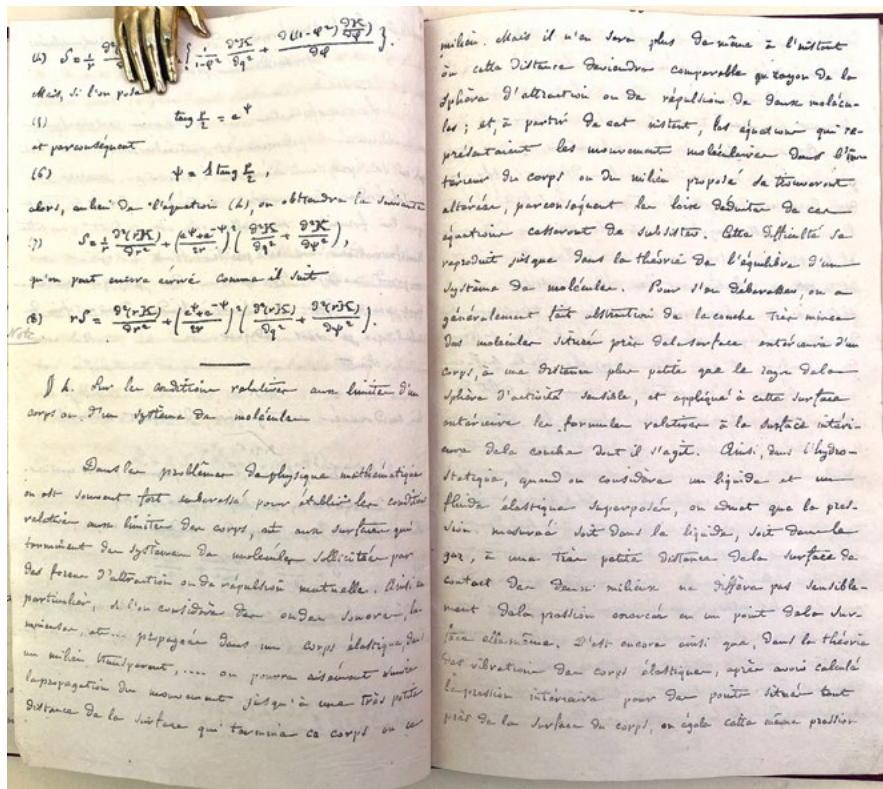 (4) S = 1/r ∂²
{ 1/(1-φ²) ∂²K/∂q² + ∂((1-φ²) ∂K/∂φ)/∂φ }.
Mais, si l'on pose
(5) tang p/2 = e^ψ
et par conséquent
(6) ψ = l tang p/2,
alors, au lieu de l'équation (4), on obtiendra la suivante
(7) S = 1/r ∂²(rK)/∂r² + ((e^ψ + e^-ψ)/2r)² (∂²K/∂q² + ∂²K/∂ψ²),
qu'on peut encore écrire comme il suit
(8) rS = ∂²(rK)/∂r² + ((e^ψ + e^-ψ)/2r)² (∂²(rK)/∂q² + ∂²(rK)/∂ψ²).
Note
§ 4. Sur les conditions relatives aux limites d'un
corps ou d'un système de molécules
Dans les problèmes de physique mathématique
on est souvent fort embarassé pour établir les conditions
relatives aux limites des corps, et aux surfaces qui
terminent des systèmes de molécules sollicitées par
des forces d'attraction ou de répulsion mutuelle. Ainsi en
particulier, si l'on considère des ondes sonores, lu
mineuses, etc... propagées dans un corps élastique, dans
un milieu transparent, .... on pourra aisément suivre
la propagation du mouvement jusqu'à une très petite
distance de la surface qui termine ce corps ou ce
milieu. Mais il n'en sera plus de même à l'instant
où cette distance deviendra comparable au rayon de la
sphère d'attraction ou de répulsion de deux molécu-
les ; et, à partir de cet instant, les équations qui re-
présentaient les mouvements moléculaires dans l'in
térieur du corps ou du milieu proposé se trouveront
altérées, par conséquent les lois déduites de ces
équations cesseront de subsister. Cette difficulté se
reproduit jusque dans la théorie de l'équilibre d'un
système de molécules. Pour s'en débarasser, on a
généralement fait abstraction de la couche très mince
des molécules situées près de la surface extérieure d'un
corps, à une distance plus petite que le rayon de la
sphère d'activité sensible, et appliqué à cette surface
extérieure les formules relatives à la surface intéri-
eure de la couche dont il s'agit. Ainsi, dans l'hydro-
statique, quand on considère un liquide et un
fluide élastique superposés, on admet que la pres-
sion mesurée soit dans le liquide, soit dans le
gaz, à une très petite distance de la surface de
contact des deux milieux ne diffère pas sensible-
ment de la pression exercée en un point de la sur-
face elle-même. C'est encore ainsi que, dans la théorie
des vibrations des corps élastiques, après avoir calculé
la pression intérieure pour des points situés tout
près de la surface du corps, on égale cette même pression